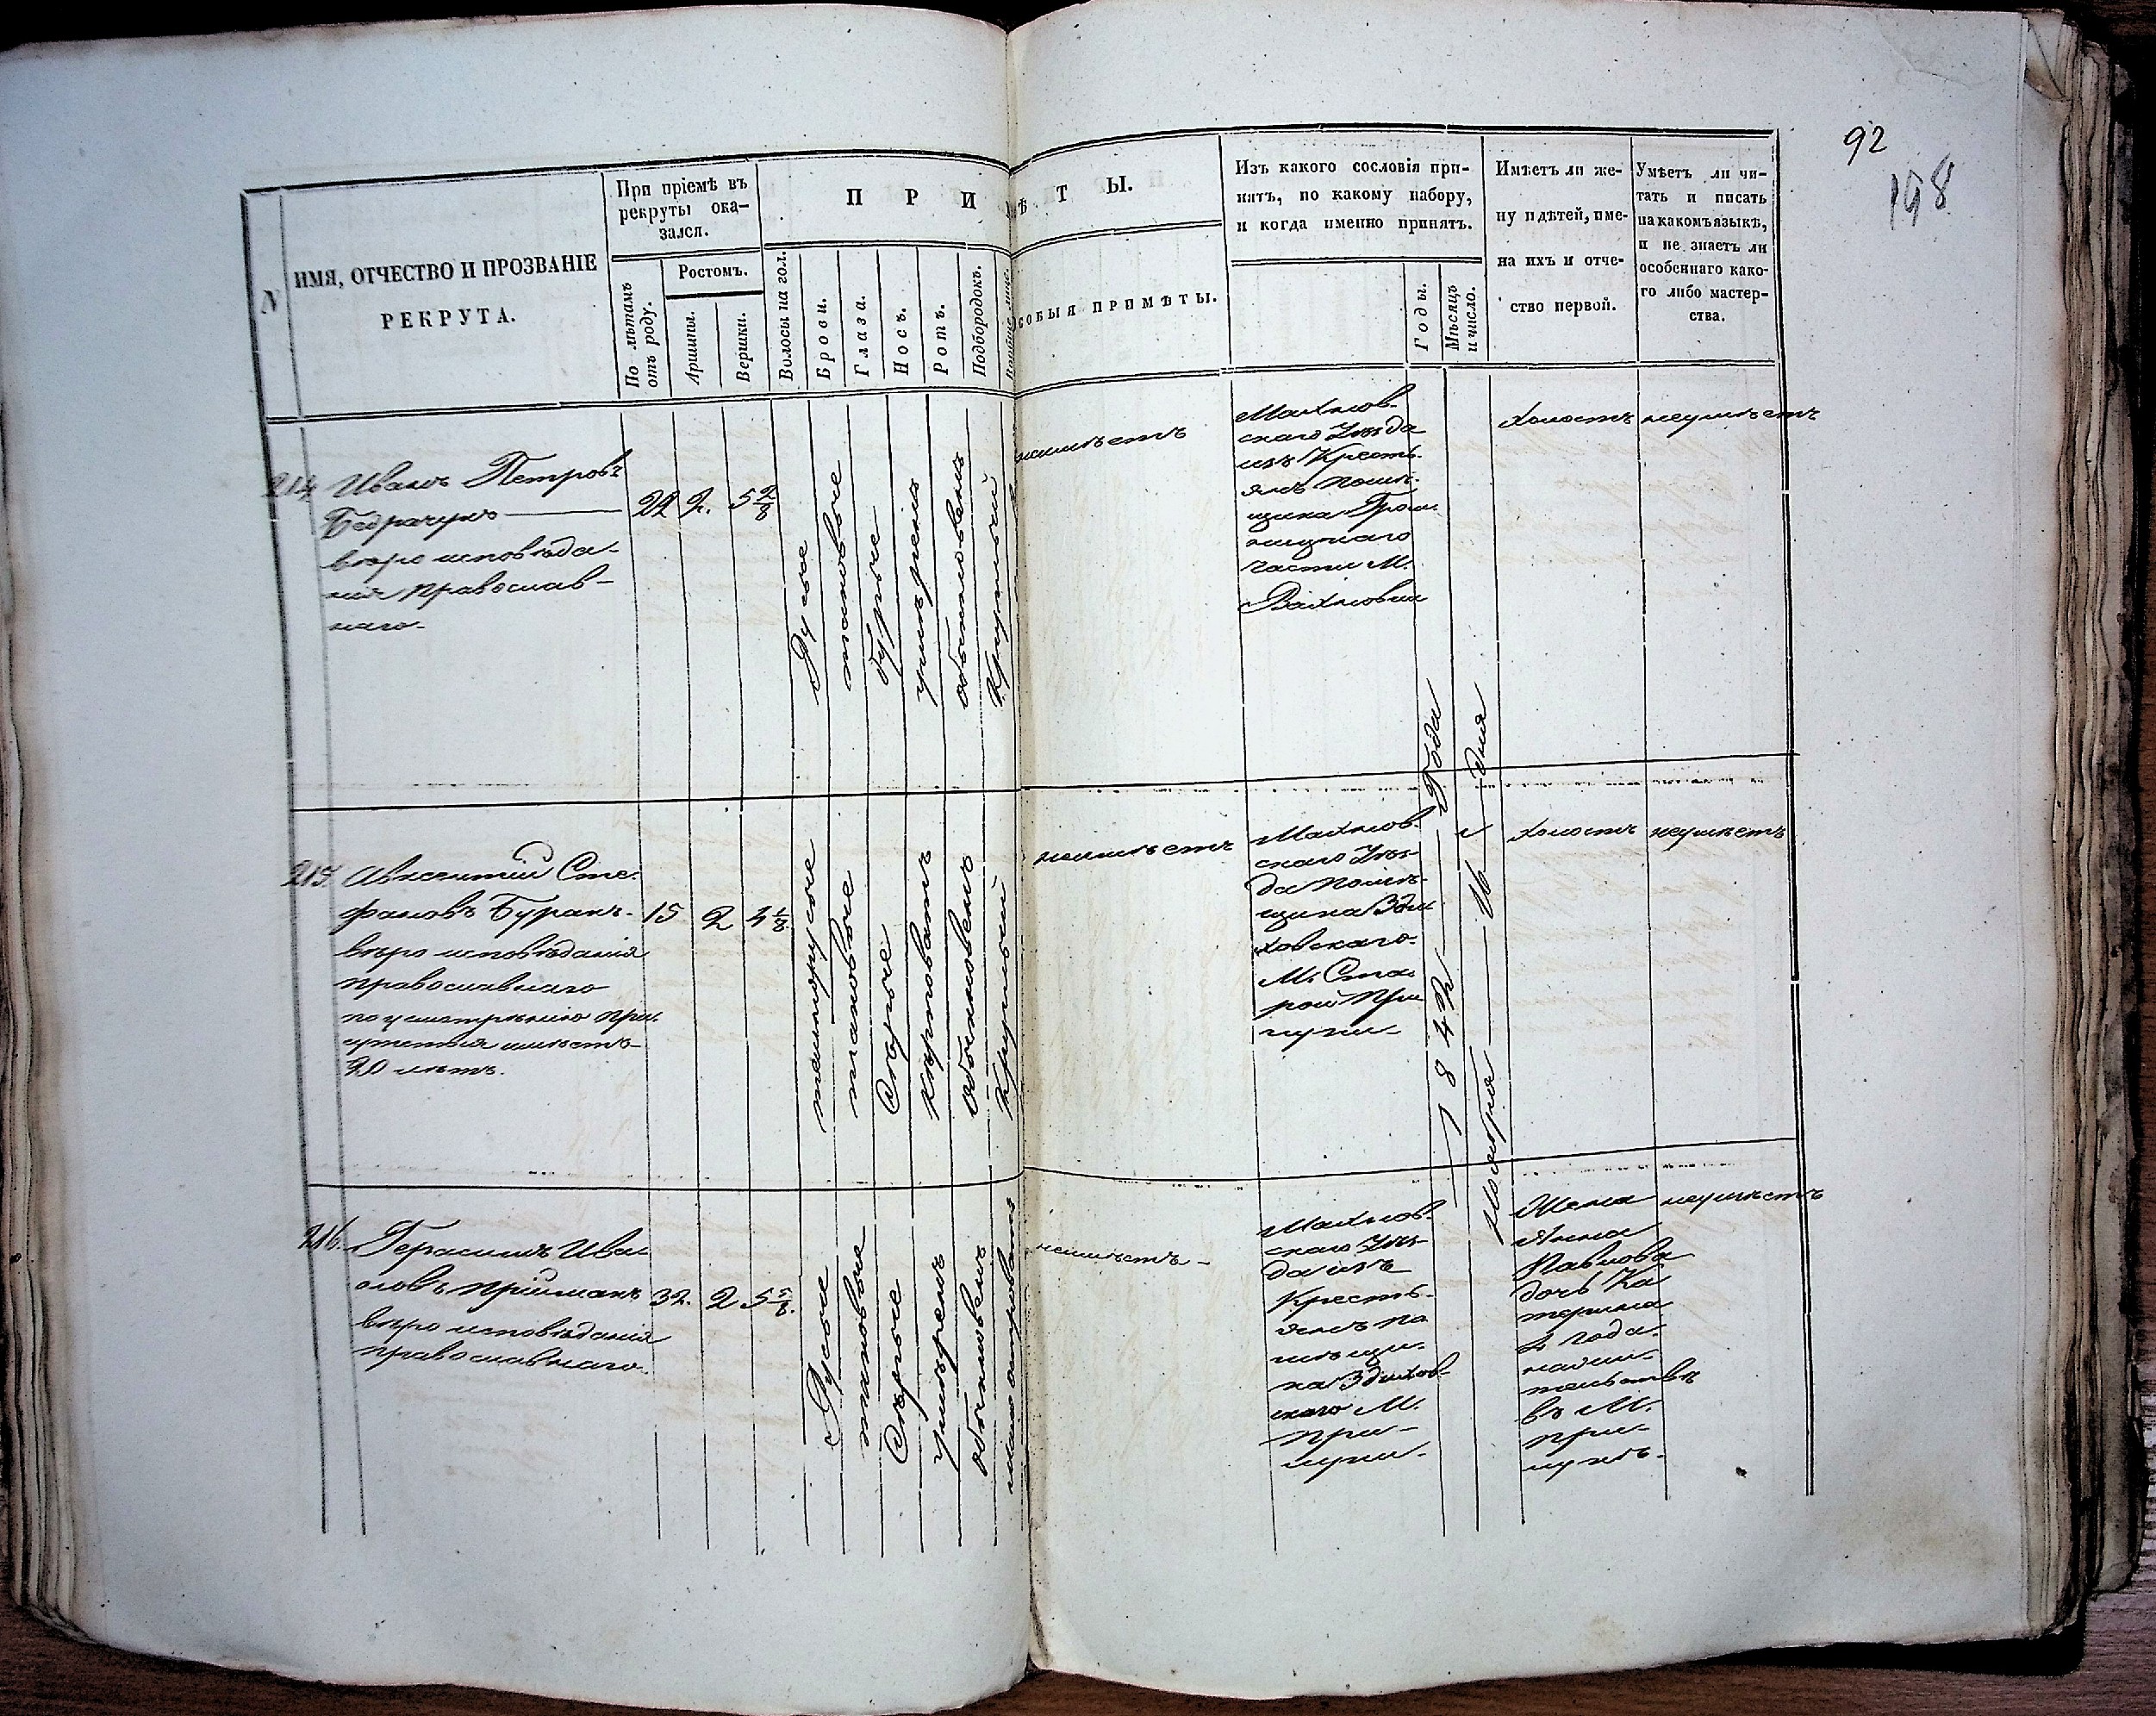 92
198
N
ИМЯ, ОТЧЕСТВО И ПРОЗВАНІЕ
РЕКРУТА.
При пріемѣ въ
рекруты ока-
зался.
По лѣтамъ
отъ роду.
Ростомъ.
Аршины.
Вершки.
П Р И М Ѣ Т Ы.
Волосы на гол.
Брови.
Глаза.
Носъ.
Ротъ.
Подбородокъ.
ОСОБЫЯ ПРИМѢТЫ.
Изъ какого сословія при-
нятъ, по какому набору,
и когда именно принятъ.
Годы.
Мѣсяцъ
и число.
Имѣетъ ли же-
ну и дѣтей, име-
на ихъ и отче-
ство первой.
Умѣетъ ли чи-
тать и писать
на какомъ языкѣ,
и не знаетъ ли
особеннаго како-
го либо мастер-
ства.
214
Иванъ Петровъ
Бедрачукъ
вѣро исповѣда-
нія православ-
наго-
22
2.
5 2/8
Русые
таковые
бурые
умѣренъ
обыкновенъ
Круглый
неимѣетъ
Махнов-
скаго Уѣзда
изъ Кресть-
янъ помѣ-
щика
части М.
Вахновки
холостъ
неумѣетъ
215.
Авксентій Сте-
фановъ Буракъ-
вѣро исповѣданія
православнаго
по усмотренію При-
сутствія имѣетъ
20 лѣтъ.
15
2
4 1/8
темнорусые
таковые
Сѣрые
Обыкновенъ
Круглый
неимѣетъ
Махнов-
скаго Уѣз-
да помѣ-
щика Здзѣ-
ховскаго-
М. Ста-
рой При-
луки-
1842 Года
Ноября 16 дня
холостъ
неумѣетъ
216.
Герасимъ Ива-
новъ Приймакъ
вѣро исповѣданія
православнаго-
32.
2
5 5/8.
Русые
таковые
Сѣрые
умѣренъ
обыкновенъ
неимѣетъ-
Махнов-
скаго Уѣз-
да изъ
Кресть-
янъ по
мѣщи-
ка Здзѣхов-
скаго М.
При-
луки-
Жена
Анна
Павлова
дочь Ка
терина
4 года.
на жи-
тельствѣ
въ М.
При-
лукѣ.
неумѣетъ